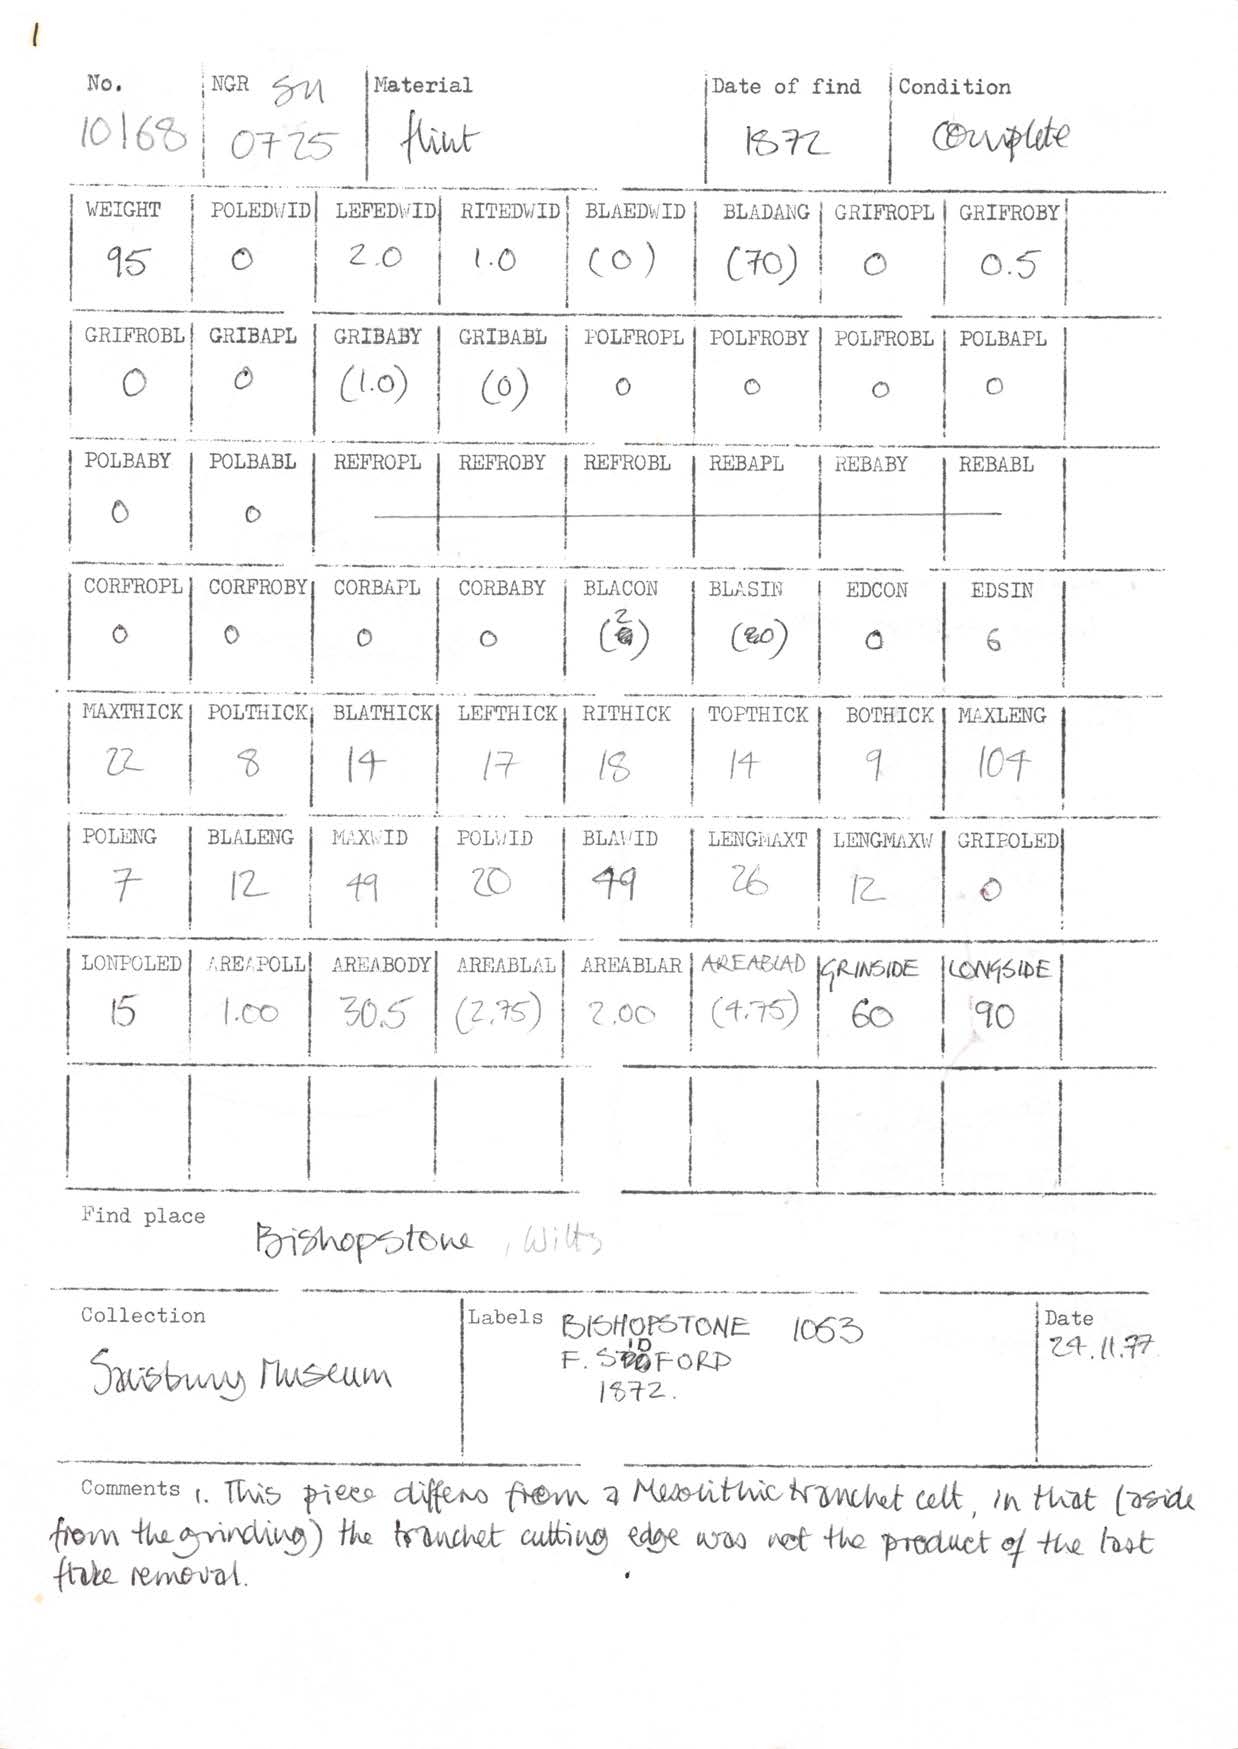 1
No. NGR SU Material Date of find Condition
10168 0725 flint 1872 Complete
WEIGHT POLEDWID LEFEDWID RITEDWID BLAEDWID BLADANG GRIFROPL GRIFROBY
95 0 2.0 1.0 (0) (70) 0 0.5
GRIFROBL GRIBAPL GRIBABY GRIBABL POLFROPL POLFROBY POLFROBL POLBAPL
0 0 (1.0) (0) 0 0 0 0
POLBABY POLBABL REFROPL REFROBY REFROBL REBAPL REBABY REBABL
0 0
CORFROPL CORFROBY CORBAPL CORBABY BLACON BLASIN EDCON EDSIN
0 0 0 0 (2) 0 6
MAXTHICK POLTHICK BLATHICK LEFTHICK RITHICK TOPTHICK BOTHICK MAXLENG
22 8 14 17 18 14 9 104
POLENG BLALENG MAXWID POLWID BLAWID LENGMAXT LENGMAXW GRIPOLED
7 12 49 20 49 26 12 0
LONPOLED AREAPOLL AREABODY AREABLAL AREABLAR AREABLAD GRINSIDE LONGSIDE
15 1.00 30.5 (2.75) 2.00 (4.75) 60 90
Find place
Bishopstone, Wilts
Collection Labels BISHOPSTONE 1053 Date
F. SIDFORD 24.11.77
Salisbury Museum 1872.
Comments 1. This piece differs from a Mesolithic tranchet celt, in that (aside
from the grinding) the tranchet cutting edge was not the product of the last
flake removal.